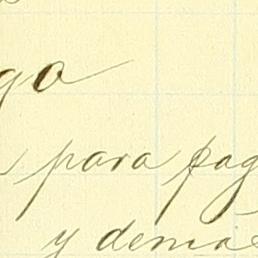 go
para pag
y demas